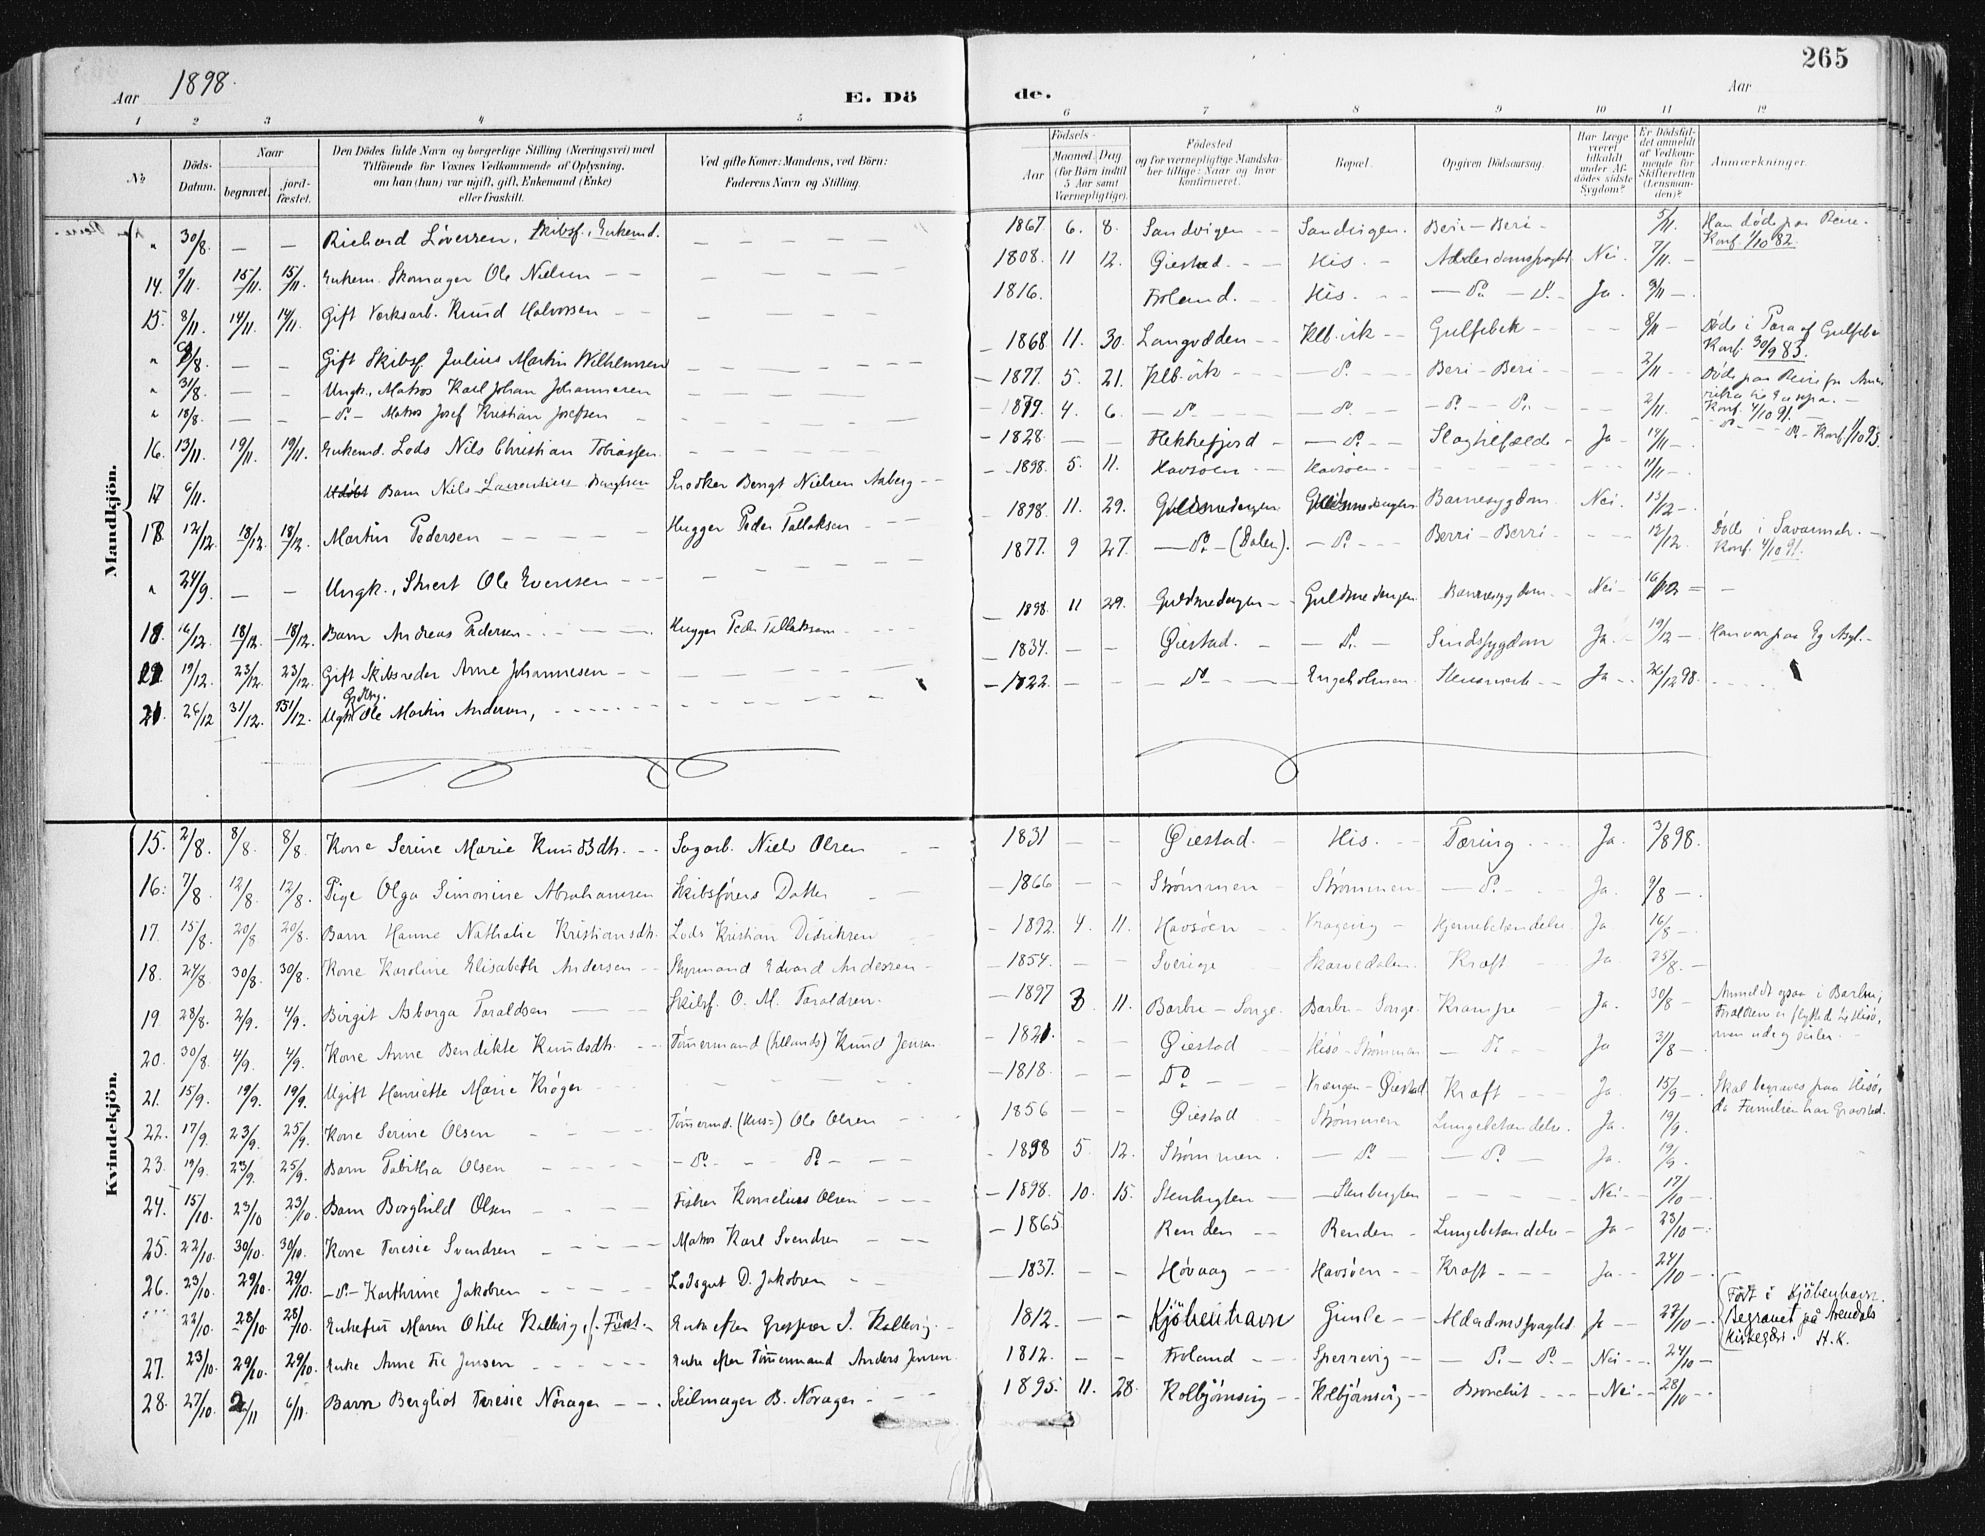 265
Aar 1898.
Aar
E. Dö de.
1 2 3 4 5 6 7 8 9 10 11 12
No
Döds-Datum.
Naar
begravet.
jord-fæstet.
Den Dödes fulde Navn og borgerlige Stilling (Næringsvei) med
Tilföiende for Voxnes Vedkommende af Oplysning,
om han (hun) var ugift, gift, Enkemand (Enke)
eller fraskilt.
Ved gifte Koner: Mandens, ved Börn:
Faderens Navn og Stilling.
Födsels-
Aar
Maaned. Dag
(for Børn indtil
5 Aar samt
Værnepligtige).
Födested
og for værnepligtige Mandska-
ber tillige: Naar og hvor
konfirmeret.
Bopæl.
Opgiven Dödsaarsag.
Har Læge
været
tilkaldt
under Af-
dödes sidste
Sygdom?
Er Dödsfal-
det anmeldt
af Vedkom-
mende for
Skifteretten
(Lensman-
den)?
Anmærkninger.
Mandkjön.
" 30/8. — — Richard Løversen, Skibsf., Enkemd. 1867. 6. 8. Sandvigen Sandvigen. Beri-Beri 5/11. Han døde paa Reise. Konf. 1/10 82.
14. 9/11. 15/11. 15/11. Enkem. Skomager Ole Nielsen 1808. 11 12. Øiestad. His. Alderdomssvaghed Nei. 7/11.
15. 8/11. 14/11. 14/11. Gift Verksarb. Knud Halvorsen 1816. Froland. His. — Do. — Do. Ja. 9/11
" — — Gift Skibsf. Julius Martin Wilhelmsen 1868 11. 30. Langodden Klb.vik Gulfeber 8/11 Døde i Para af Gulfeber Konf. 30/9 83.
" 31/8. — — Ungk., Matros Karl Johan Johannesen 1877. 5. 21. Klb.vik — Do. Beri-Beri 2/11 Døde paa Reise fra Amerika til Europa. Konf. 4/10 91.
" 18/8. — — — Do — Matros Josef Kristian Josefsen 1879. 4. 6. — Do — Do. — Do. — Do. 2/11. — Do. — Do. — Konf. 1/10 93.
16. 13/11. 19/11. 19/11. Enkemd. Lods Nils Christian Tobiassen. 1828. Flekkefjord — Do. Slagtilfælde Ja 14/11
17 6/11. Udøbt Barn Nils Laurentius Bengtsen Snedker Bengt Nielsen Aaberg 1898. 5. 11. Havsøen Havsøen 11/11
17. 12/12. 18/12. 18/12. Martin Pedersen Hugger Peder Tallaksen 1898. 11. 29. Guldsmedengen Guldsmedengen Barnesygdom. Nei. 13/12
" 24/9. — — Ungk., Stuert Ole Evensen 1877. 9 27. — Do — (Dalen). — Do. Berri-Berri 12/12. Døde i Savannah. Konf. 4/10 91.
18. 16/12. 18/12. 18/12. Barn Andreas Pedersen Hugger Peder Tallaksen 1898. 11 29. Guldsmedengen Guldsmedengen Barnesygdom Nei 16/12
19/12. 23/12. 23/12. Gift Skibsreder Arne Johannesen 1834. — — Øiestad. — Do. Sindssygdom Ja. 19/12 Han var paa Eg Asyl.
26/12 31/12. 31/12. Ugft. Gdbr. Ole Martin Andersen, 1822. — — — Do Engeholmen Stensmerte Ja 26/12 98.
Kvindekjön.
15. 2/8. 8/8. 8/8. Kone Serine Marie Knudsdtr. Sagarb. Niels Olsen 1831 — — Øiestad. His. Tæring Ja. 3/8 98.
16. 7/8. 12/8. 12/8. Pige Olga Simonine Abrahamsen Skibsførers Datter 1866 — — Strømmen Strømmen — Do. Ja. 9/8 —.
17. 15/8. 20/8 20/8. Barn Hanne Nathalie Kristiansdtr. Lods Kristian Didriksen 1892. 4. 11. Havsøen Vragevig Hjernebetændelse. Ja. 16/8 —.
18. 24/8. 30/8. 30/8. Kone Karoline Elisabeth Andersen Styrmand Edvard Andersen 1854. — — Sverige Skarvedalen. Kræft Ja. 25/8. —
19 28/8. 2/9. 4/9. Birgit Asborga Taraldsen Skibsf. O. M. Taraldsen. 1897 3. 11. Barbu-Songe. Barbu-Songe. Krampe Ja. 30/8 — Anmeldt ogsaa i Barbu; Forældrene er flyttede til Hisø, men ude og seiler.
20. 30/8. 4/9. 4/9. Kone Anne Bendikte Knudsdtr. Tømmermand Knud Jensen 1821. — — Øiestad Hisø-Strømmen — Do. — Ja 31/8 —.
21. 15/9. 19/9. 19/9. Ugift Henriette Marie Krøger 1818. — — Do Vrængen-Øiestad Kræft Ja. 15/9 —. Skal begraves paa Hisø, da Familien har Gravsted.
22. 17/9. 23/9. 25/9. Kone Serine Olsen Tømmermd. (Hus=) Ole Olsen 1856 — — Øiestad Strømmen Lungebetændelse. Ja. 19/9.
23. 19/9. 23/9. 25/9. Barn Tabitha Olsen — Do. — Do. 1898 5. 12. Strømmen. — Do — Do. Ja. 19/9.
24. 15/10. 23/10 23/10. Barn Borghild Olsen Fisker Kornelius Olsen 1898. 10. 15. Stenbugten Stenbugten Nei 17/10 —.
25. 22/10. 30/10. 30/10. Kone Teresie Svendsen Matros Karl Svendsen 1865 Renden Renden Lungebetændelse Ja 23/10 —.
26. 23/10. 29/10. 29/10. — Do — Kathrine Jakobsen Lodsgut D. Jakobsen 1837. — — Høvaag Havsøen Kræft Ja 24/10 —
22/10. 28/10. 28/10. Enkefru Maren Othilie Kallevig, f. Fürst. Enke efter Grosserer J. Kallevig. 1812. — — Kjöbenhavn Gimle Alderdomssvaghed Ja 22/10 — Født i Kjöbenhavn. Begravet på Arendals Kirkegår. H.K.
27. 23/10. 29/10. 29/10. Enke Anne Fie Jensen Enke efter Tømmermand Anders Jensen 1812. — — Froland Sperrevig — Do. — Do. Nei 24/10
28. 27/10. 2/11 6/11. Barn Bergliot Teresie Norager Seilmager B. Norager 1895. 11. 28. Kolbjørnsvig Kolbjørnsvig Bronchit Nei 28/10 —